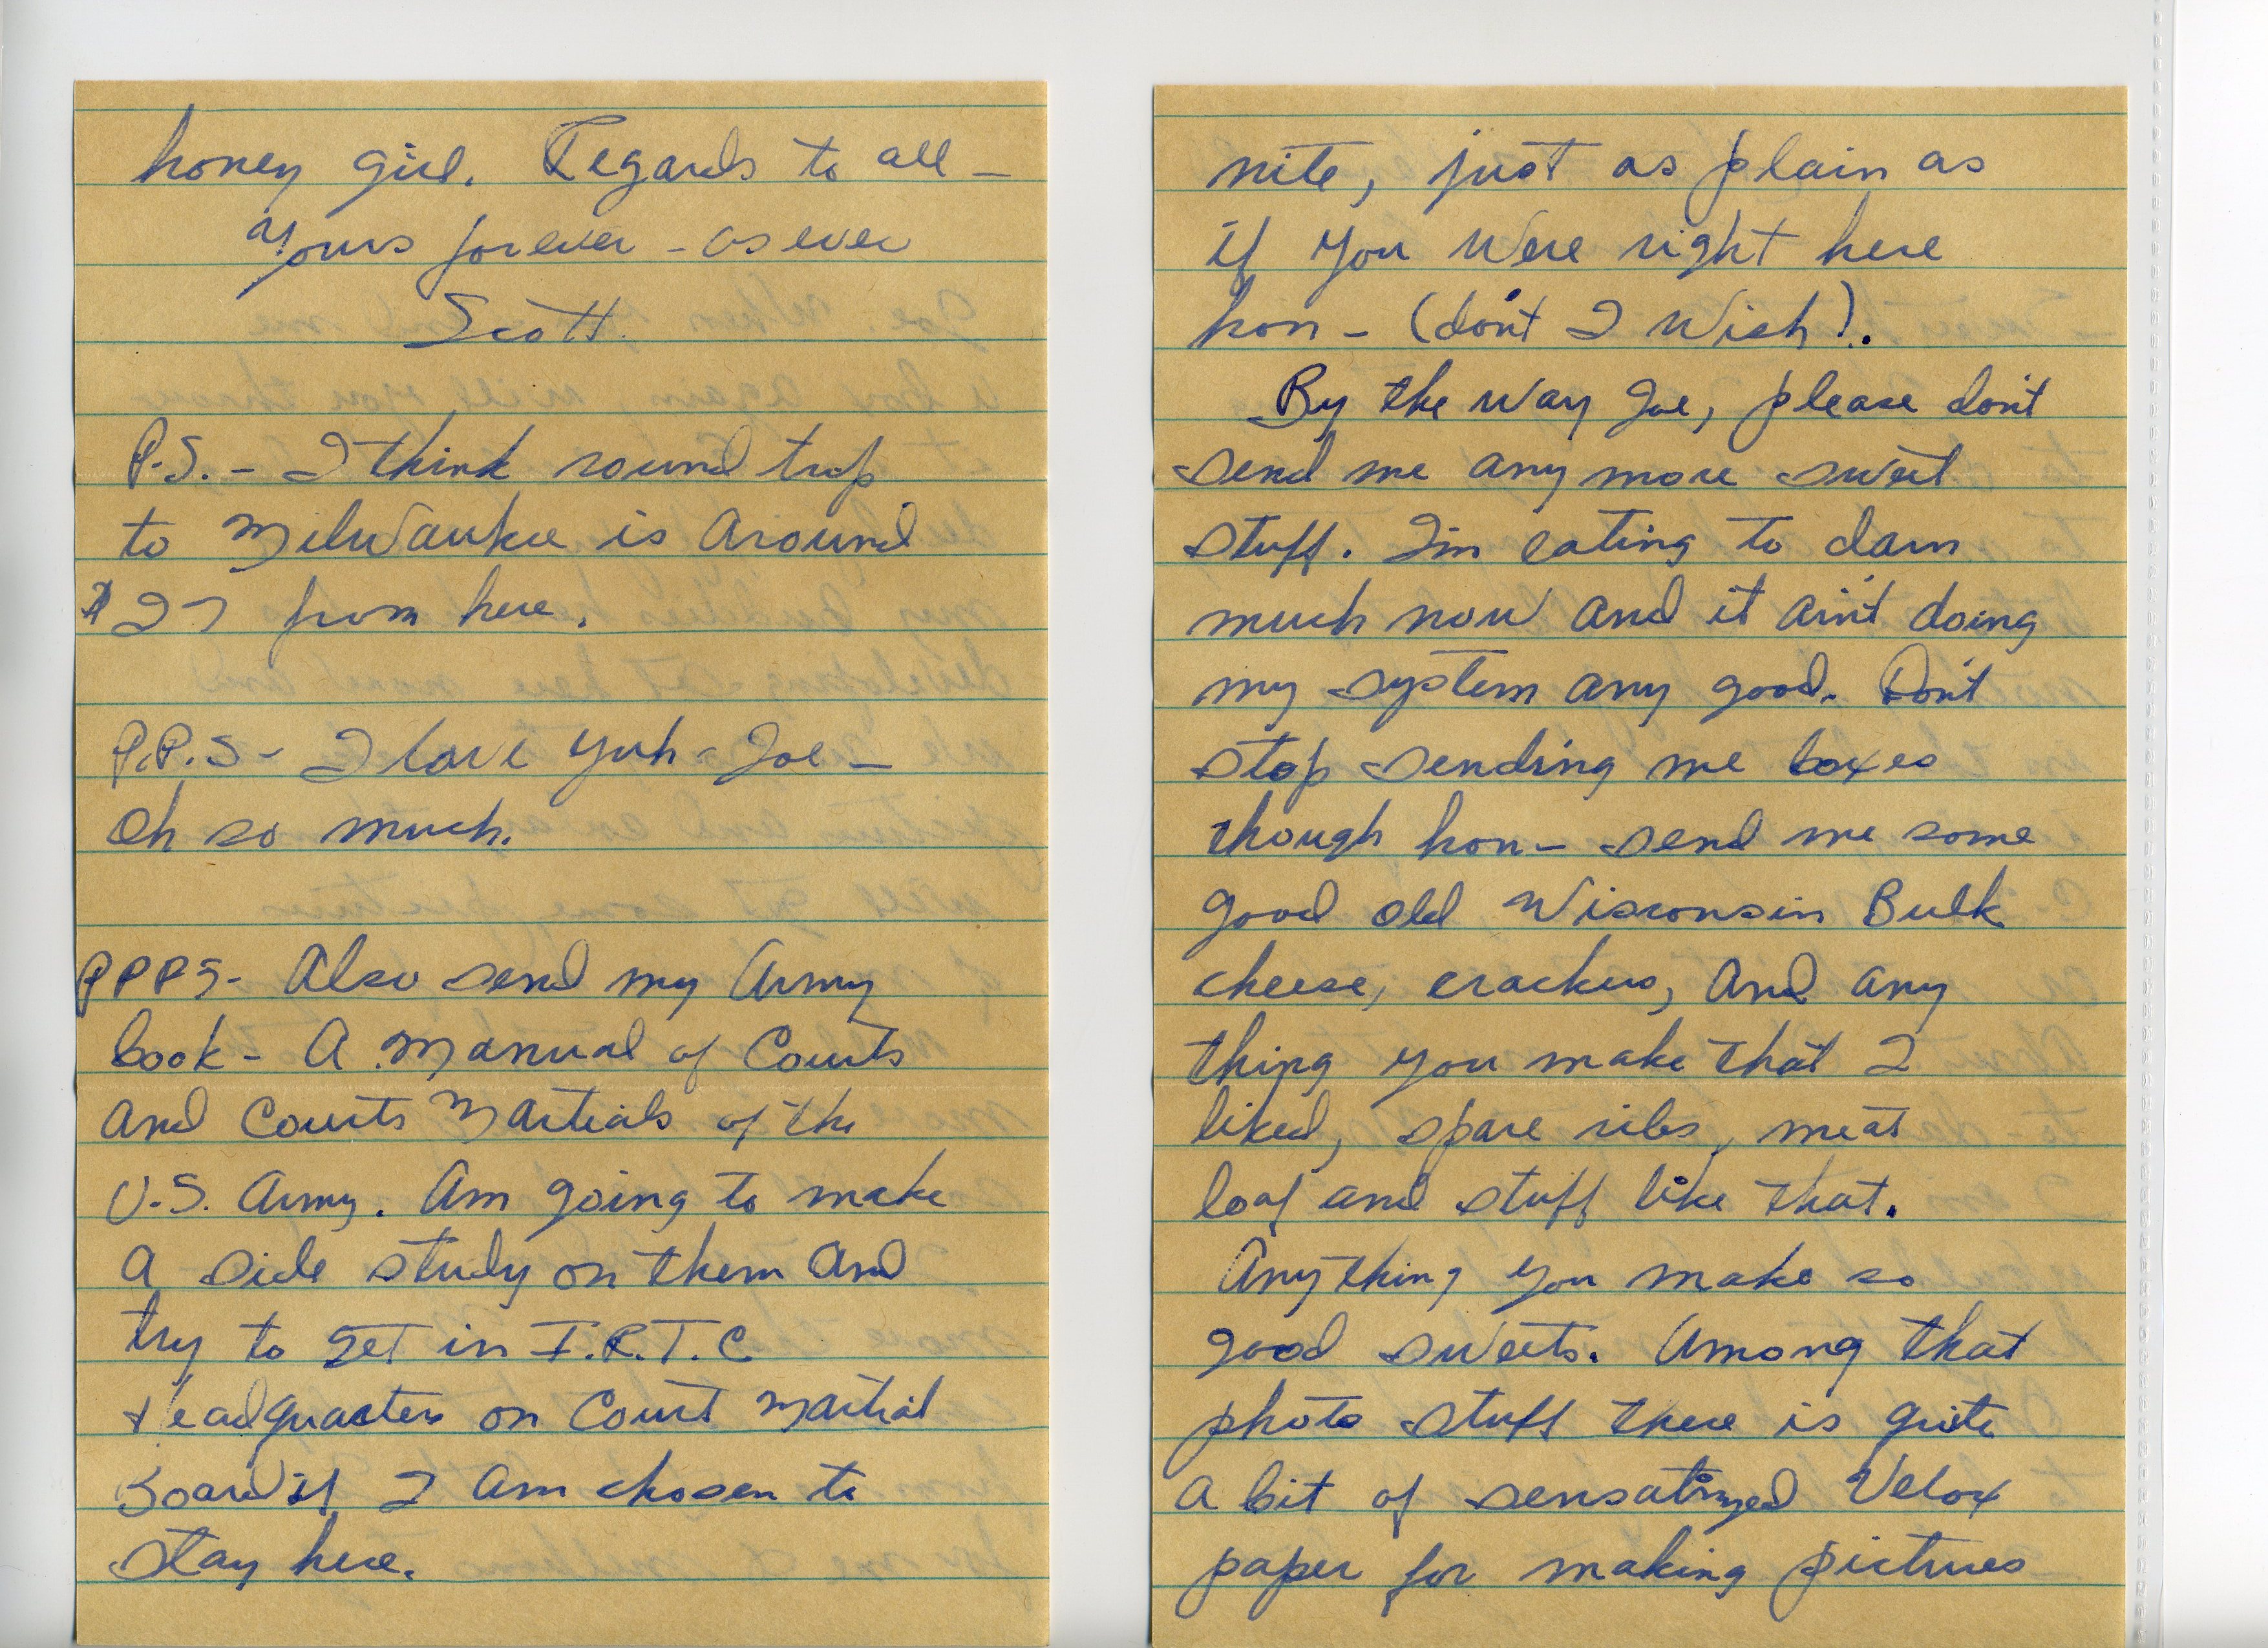 honey girl. Regards to all -
yours forever - as ever
Scott.
P.S. - I think round trip
to Milwaukee is around
$27 from here.
P.P.S - I love yuh - Joe -
Oh so much.
PPPS - Also send my Army
book - A Manual of Courts
and Courts Martials of the
U.S. Army. Am going to make
a side study on them and
try to get in I.R.T.C
Headquarters on Court Martial
Board if I am chosen to
stay here.
nite, just as plain as
if you were right here
hon - (don't I wish).
By the way Joe, please don't
send me any more sweet
stuff. I'm eating to darn
much now and it ain't doing
my system any good. Don't
stop sending me boxes
though hon - send me some
good old Wisconsin Bulk
cheese, crackers, and any
thing you make that I
liked, spare ribs, meat
loaf and stuff like that.
Anything you make so
good sweets. Among that
photo stuff there is quite
a bit of sensatized Velox
paper for making pictures